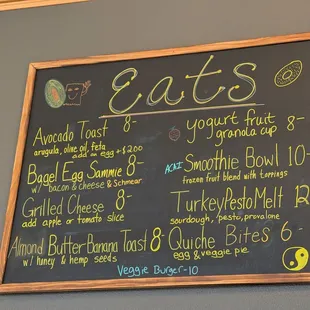 Eats
Avocado Toast 8-
arugula, olive oil, feta
add an egg +$2.00
Bagel Egg Sammie 8-
w/ bacon & cheese & Schmear
Grilled Cheese 8-
add apple or tomato slice
Almond Butter Banana Toast 8-
w/ honey & hemp seeds
yogurt fruit 8-
granola cup
ACAI Smoothie Bowl 10-
frozen fruit blend with toppings
Turkey Pesto Melt 12
sourdough, pesto, provalone
Quiche Bites 6-
egg & veggie pie
Veggie Burger-10